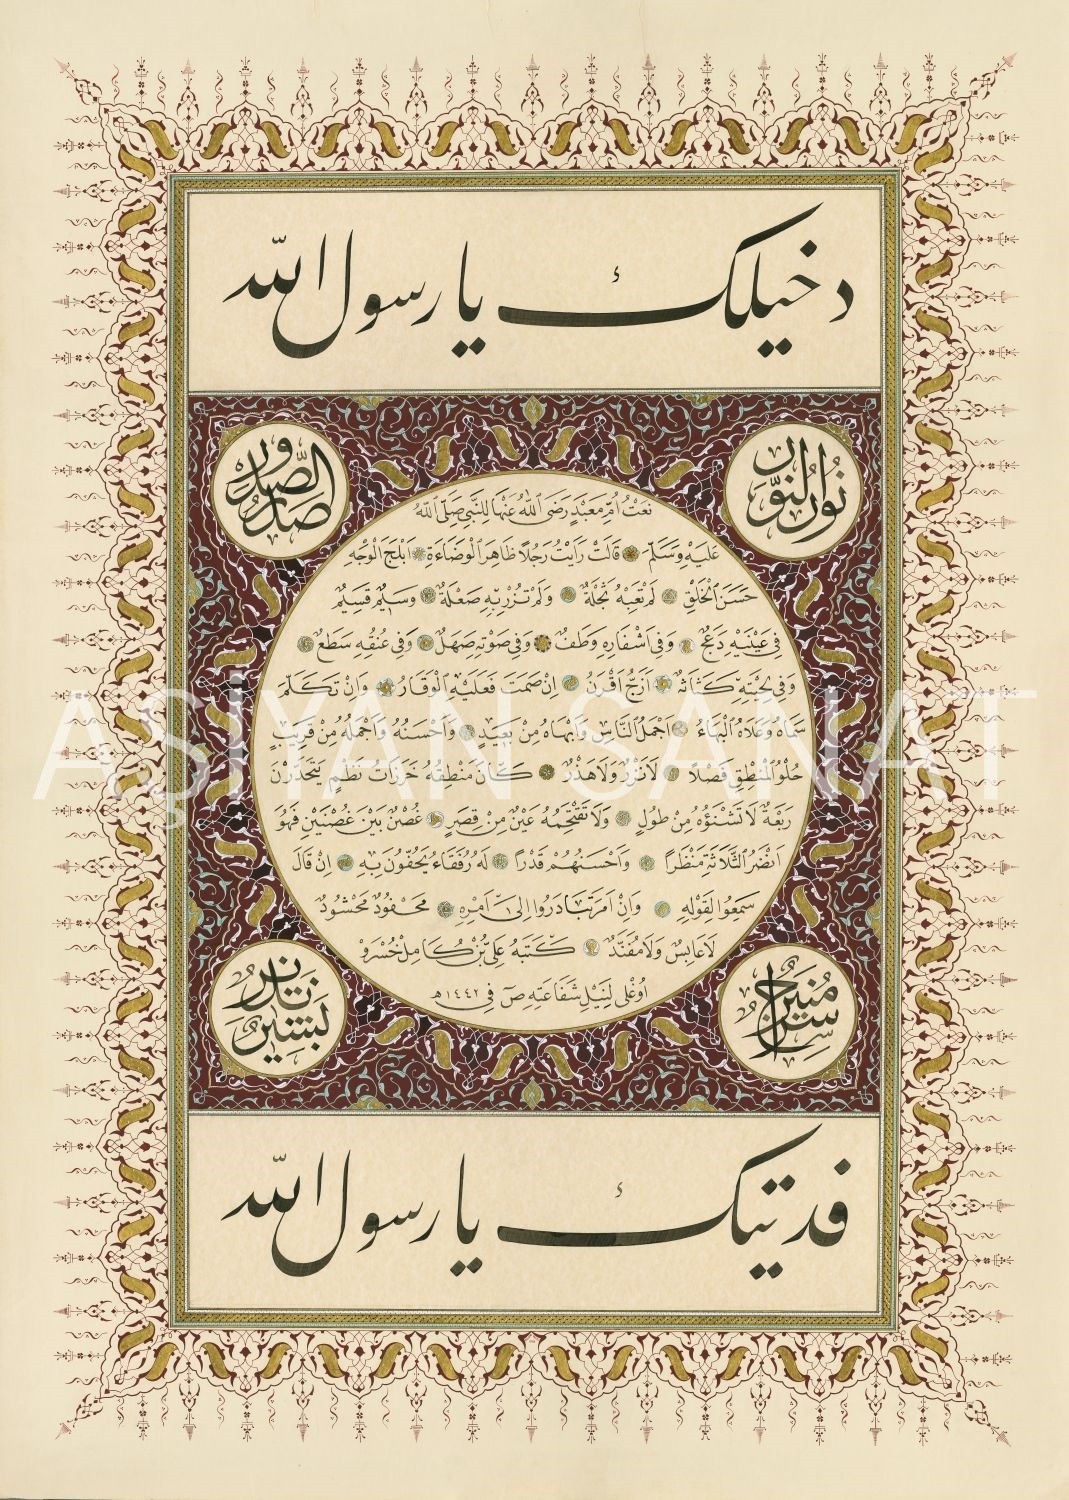 دخيلك يا رسول الله
نور النور
صدر الصدور
نَعْتُ أُمِّ مَعْبَدٍ رَضِىَ اللهُ عَنْهَا لِلنَّبِىِّ صَلَّى اللهُ
عَلَيْهِ وَسَلَّمَ قَالَتْ رَاَيْتُ رَجُلاً ظَاهِرَ الْوَضَاءَةِ اَبْلَجَ الْوَجْهِ
حَسَنَ الْخَلْقِ لَمْ تَعِبْهُ ثُجْلَةٌ وَلَمْ تُزْرِ بِهِ صَعْلَةٌ وَسِيمٌ قَسِيمٌ
فِى عَيْنَيْهِ دَعَجٌ وَفِى اَشْفَارِهِ وَطَفٌ وَفِى صَوْتِهِ صَهَلٌ وَفِى عُنُقِهِ سَطَعٌ
وَفِى لِحْيَتِهِ كَثَاثَةٌ اَزَجُّ اَقْرَنُ اِنْ صَمَتَ فَعَلَيْهِ الْوَقَارُ وَاِنْ تَكَلَّمَ
سَمَاهُ وَعَلَاهُ الْبَهَاءُ اَجْمَلُ النَّاسِ وَاَبْهَاهُ مِنْ بَعِيدٍ وَاَحْسَنُهُ وَاَجْمَلُهُ مِنْ قَرِيبٍ
حُلْوُ الْمَنْطِقِ فَصْلاً لَا نَزْرٌ وَلَا هَذْرٌ كَانَ مَنْطِقُهُ خَرَزَاتُ نَظْمٍ يَتَحَدَّرْنَ
رَبْعَةٌ لَا تَشْنَؤُهُ مِنْ طُولٍ وَلَا تَقْتَحِمُهُ عَيْنٌ مِنْ قِصَرٍ غُصْنٌ بَيْنَ غُصْنَيْنِ فَهُوَ
اَنْضَرُ الثَّلَاثَةِ مَنْظَرًا وَاَحْسَنُهُمْ قَدْرًا لَهُ رُفَقَاءُ يَحُفُّونَ بِهِ اِنْ قَالَ
سَمِعُوا لِقَوْلِهِ وَاِنْ اَمَرَ تَبَادَرُوا اِلَى اَمْرِهِ مَحْفُودٌ مَحْشُودٌ
لَا عَابِسٌ وَلَا مُفَنَّدٌ كَتَبَهُ عَلِىُّ بْنُ كَامِل خُسْرَوْ
اُوغْلِى لِنَيْلِ شَفَاعَتِهِ ص فِى ١٤٤٢ه
سراج منير
بشير نذير
فديتك يا رسول الله
AŞİYAN SANAT